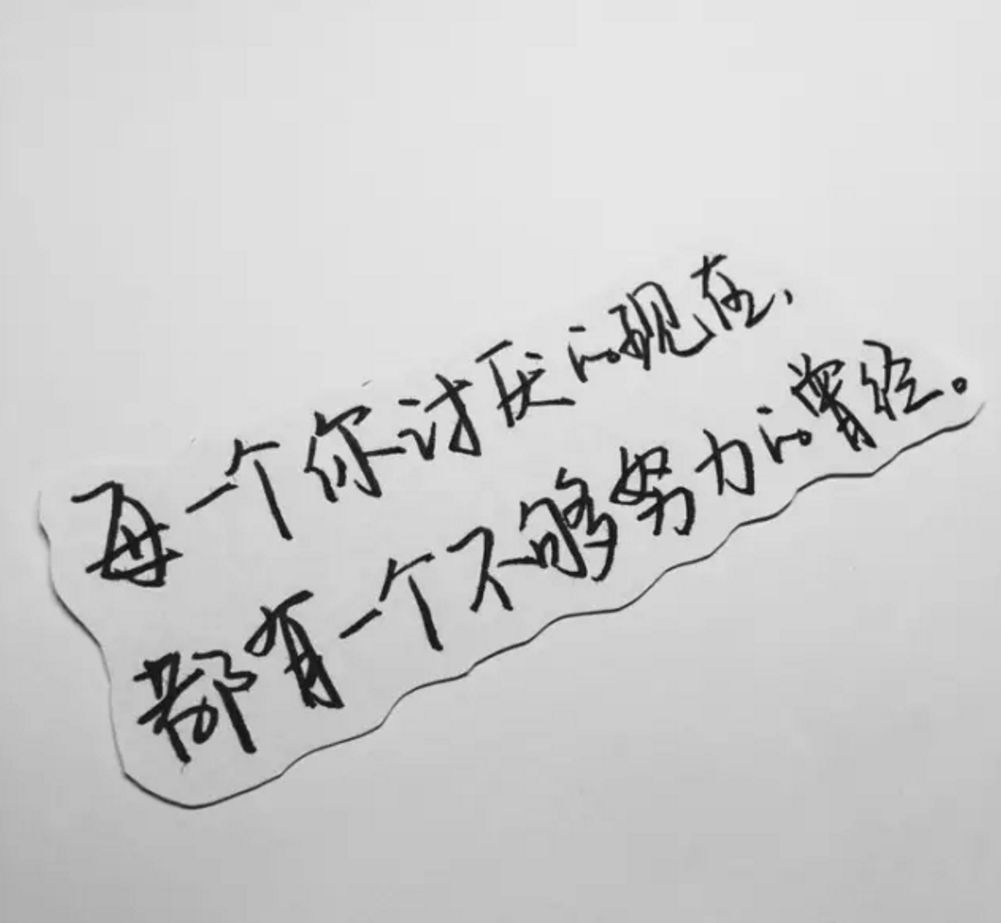 每一个你讨厌的现在、
都有一个不够努力的曾经。